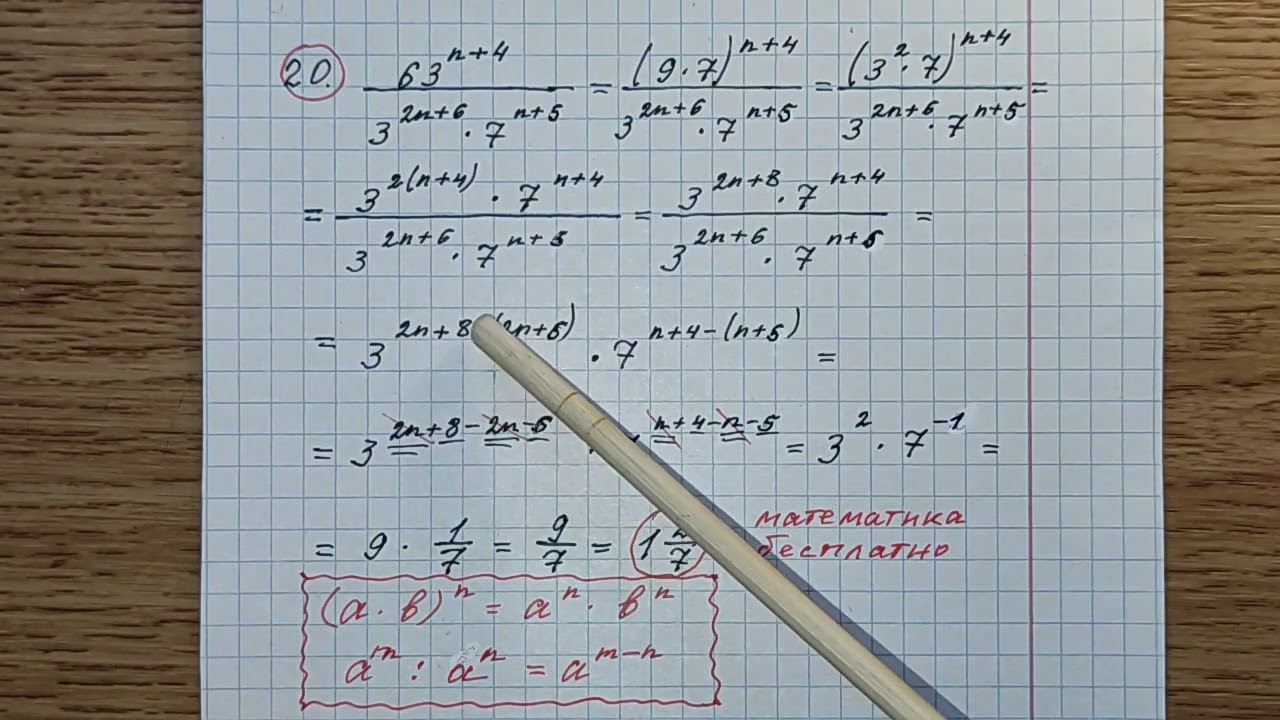 20. 63^(n+4) / (3^(2n+6) · 7^(n+5)) = (9 · 7)^(n+4) / (3^(2n+6) · 7^(n+5)) = (3^2 · 7)^(n+4) / (3^(2n+6) · 7^(n+5)) =
= 3^(2(n+4)) · 7^(n+4) / (3^(2n+6) · 7^(n+5)) = 3^(2n+8) · 7^(n+4) / (3^(2n+6) · 7^(n+5)) =
= 3^(2n+8 (2n+6)) · 7^(n+4-(n+5)) =
= 3^(2n+8-2n-6) · ^(n+4-n-5) = 3^2 · 7^(-1) =
= 9 · 1/7 = 9/7 = 1 2/7
математика
бесплатно
(a · b)^n = a^n · b^n
a^m : a^n = a^(m-n)